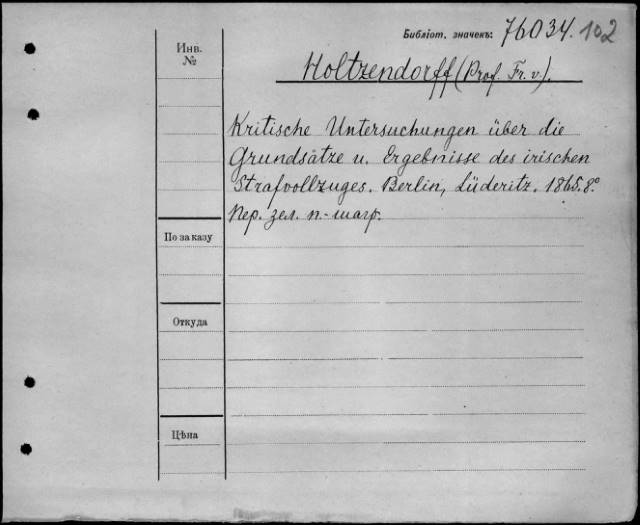 Библіот. значекъ: 76034. 102
Инв.
№
Holtzendorff (Prof. Fr. v.).
Kritische Untersuchungen über die
Grundsätze u. Ergebnisse des irischen
Strafvollzuges. Berlin, Lüderitz. 1865. 8°
Пер. зел. п.-шагр.
По заказу
Откуда
Цѣна